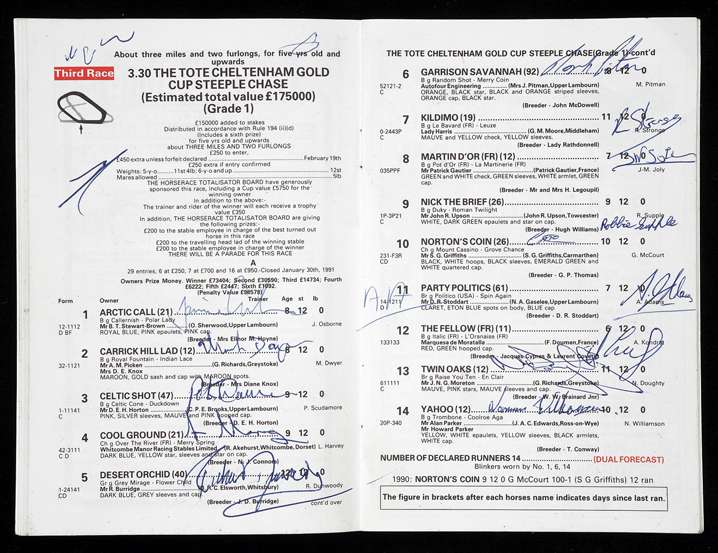 About three miles and two furlongs, for five yrs old and
upwards
Third Race
3.30 THE TOTE CHELTENHAM GOLD
CUP STEEPLE CHASE
(Estimated total value £175000)
(Grade 1)
£150000 added to stakes
Distributed in accordance with Rule 194 (ii)(d)
(Includes a sixth prize)
for five yrs old and upwards
about THREE MILES AND TWO FURLONGS
£250 to enter,
£450 extra unless forfeit declared February 19th
£250 extra if entry confirmed
Weights: 5-y-o 11st 4lb; 6-y-o and up 12st
Mares allowed 5lb
THE HORSERACE TOTALISATOR BOARD have generously
sponsored this race, including a Cup value £5750 for the
winning owner
In addition to the above:-
The trainer and rider of the winner will each receive a trophy
value £250
In addition, THE HORSERACE TOTALISATOR BOARD are giving
the following prizes:-
£200 to the stable employee in charge of the best turned out
horse in this race
£200 to the travelling head lad of the winning stable
£200 to the stable employee in charge of the winner
THERE WILL BE A PARADE FOR THIS RACE
A
29 entries, 6 at £250, 7 at £700 and 16 at £950.-Closed January 30th, 1991
Owners Prize Money. Winner £73404; Second £30590; Third £14734; Fourth
£6222; Fifth £2447; Sixth £1092.
(Penalty Value £98578)
Form Owner Trainer Age st lb
1 ARCTIC CALL (21) 8 12 0
B g Callernish - Polar Lady
12-1112 Mr B. T. Stewart-Brown (O. Sherwood,Upper Lambourn) J. Osborne
D BF ROYAL BLUE, PINK epaulets, PINK cap.
(Breeder - Mrs Elinor M. Hayne)
2 CARRICK HILL LAD (12) 8 12 0
B g Royal Fountain - Indian Lace
32-1121 Mr A. M. Picken (G. Richards,Greystoke) M. Dwyer
Mrs D. E. Knox
MAROON, GOLD sash and cap with MAROON spots.
(Breeder - Mrs Diane Knox)
3 CELTIC SHOT (47) 9 12 0
B g Celtic Cone - Duckdown
1-11141 Mr D. E. H. Horton (C. P. E. Brooks,Upper Lambourn) P. Scudamore
C PINK, SILVER sleeves, MAUVE and PINK hooped cap.
(Breeder - D. E. H. Horton)
4 COOL GROUND (21) 9 12 0
Ch g Over The River (FR) - Merry Spring
42-3111 Whitcombe Manor Racing Stables Limited (R. Akehurst,Whitcombe,Dorset) L. Harvey
C D DARK BLUE, YELLOW star, sleeves and star on cap.
(Breeder - N. J. Connors)
5 DESERT ORCHID (40) 12 0
Gr g Grey Mirage - Flower Child
1-24141 Mr R. Burridge (D. R. C. Elsworth,Whitsbury) R. Dunwoody
CD DARK BLUE, GREY sleeves and cap
(Breeder - J. D. Burridge) cont'd over
THE TOTE CHELTENHAM GOLD CUP STEEPLE CHASE(Grade 1)-cont'd
6 GARRISON SAVANNAH (92) 8 12 0
B g Random Shot - Merry Coin
52121-2 Autofour Engineering (Mrs J. Pitman,Upper Lambourn) M. Pitman
C ORANGE, BLACK star, BLACK and ORANGE striped sleeves,
ORANGE cap, BLACK star.
(Breeder - John McDowell)
7 KILDIMO (19) 11 12 0
B g Le Bavard (FR) - Leuze
0-2443P Lady Harris (G. M. Moore,Middleham) R. Stronge
C MAUVE and YELLOW check, YELLOW sleeves.
(Breeder - Lady Rathdonnell)
8 MARTIN D'OR (FR) (12) 7 12 0
B g Pot d'Or (FR) - La Martinerie (FR)
035PPF Mr Patrick Gautier (Patrick Gautier,France) J-M. Joly
GREEN and WHITE check, GREEN sleeves, WHITE armlet, GREEN
cap.
(Breeder - Mr and Mrs H. Legoupil)
9 NICK THE BRIEF (26) 9 12 0
B g Duky - Roman Twilight
1P-3P21 Mr John R. Upson (John R. Upson,Towcester) R. Supple
C WHITE, DARK GREEN epaulets and star on cap.
(Breeder - Hugh Williams)
10 NORTON'S COIN (26) 10 12 0
Ch g Mount Cassino - Grove Chance
231-F3R Mr S. G. Griffiths (S. G. Griffiths,Carmarthen) G. McCourt
CD BLACK, WHITE hoops, BLACK sleeves, EMERALD GREEN and
WHITE quartered cap.
(Breeder - G. P. Thomas)
11 PARTY POLITICS (61) 7 12 0
B g Politico (USA) - Spin Again
14-1211 Mr D. R. Stoddart (N. A. Gaselee,Upper Lambourn) A. Adams
CLARET, ETON BLUE spots on body, BLUE cap
(Breeder - D. R. Stoddart)
12 THE FELLOW (FR) (11) 6 12 0
B g Italic (FR) - L'Oranaise (FR)
133133 Marquesa de Moratalla (F. Doumen,France) A. Kondrat
RED, GREEN hooped cap.
(Breeder - Jacques Cypres & Laurent Couetil)
13 TWIN OAKS (12) 11 12 0
B g Raise You Ten - En Clair
611111 Mr J. N. G. Moreton (G. Richards,Greystoke) N. Doughty
C MAUVE, PINK stars, MAUVE sleeves and cap.
(Breeder - W. W. Brainard Jnr)
14 YAHOO (12) 10 12 0
B g Trombone - Coolroe Aga
20P-340 Mr Alan Parker (J. A. C. Edwards,Ross-on-Wye) N. Williamson
Mr Howard Parker
YELLOW, WHITE epaulets, YELLOW sleeves, BLACK armlets,
WHITE cap.
(Breeder - T. Conway)
NUMBER OF DECLARED RUNNERS 14 (DUAL FORECAST)
Blinkers worn by No. 1, 6, 14
1990: NORTON'S COIN 9 12 0 G McCourt 100-1 (S G Griffiths) 12 ran
The figure in brackets after each horses name indicates days since last ran.